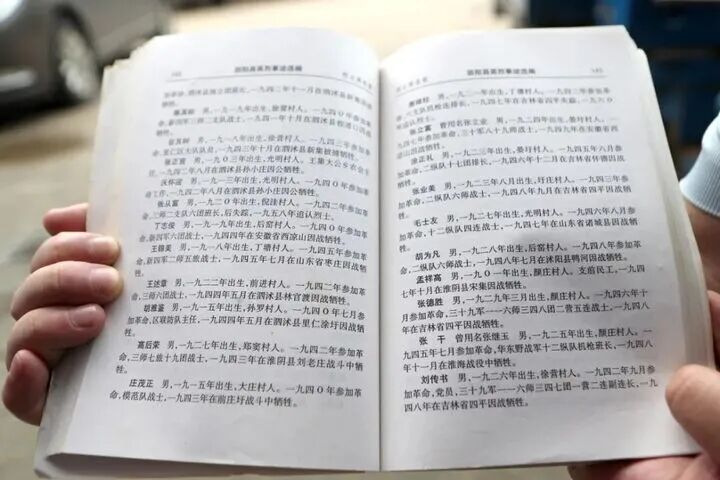 泗阳县英烈事迹选编
革命,泗沭县独立团班长,一九四二年十一月在泗沭县
牺牲。
男,一九一九年出生,徐营村人。一九四
男,一九一八年出生,徐营村人。一九四二年参加革
命,里仁区大队队员,一九四三年十一月在泗沭县新集被捕牺牲。
张正宣 男,一九〇三年出生,光明村人。王集大公乡农会
一九四二年在泗沭县孙小庄因公牺牲。
男,一九二三年出生,光明村人。一九四〇年参加革
命工作,一九四二年八月在泗沭县孙小庄因公牺牲。
张从富 男,一九二〇年出生,倪洼村人。一九四〇年参加革
命,三师二支队六团班长,后失踪,一九五八年追认烈士。
丁志俊 男,一九一七年出生,后窑村人。一九四一年参加革
命,新四军六团战士,一九四四年在安徽省西凉山因战牺牲。
王锦美 男,一九一八年出生,丁塘村人。一九四一年参加革
命,新四军二师五旅战士,一九四五年七月在山东省枣庄因战牺
牲。
王达章 男,一九二二年出生,前进村人。一九四〇年参加革
命,三师六团战士,一九四四年五月在泗沭县林官渡因战牺牲。
胡雅鉴 男,一九一五年出生,孙罗村人。一九四〇年七月参加
革命,区联防队主任,一九四四年五月在泗沭县里仁涂圩因战牺
牲。
高后荣 男,一九二七年出生,郑窦村人。一九四二年参加革
命,三师七旅十九团战士,一九四三年在淮阴县刘老庄战斗中牺
牲。
庄茂正 男,一九一五年出生,大庄村人。一九四〇年参加革
命,模范队战士,一九四三年在前庄圩战斗中牺牲。
泗阳县英烈事迹选编
男,一九二三年出生,丁塘村人。一九四五年
失踪,一九六〇
年追认烈士。
张立富 曾用名张立业,男,一九二四年出生,晏圩村人。一九
四七年参加革命,三十军八十九师战士,一九四九年在安徽省西
凉山因战牺牲。
男,一九二三年出生,晏圩村人。一九四五年八月参
加革命,二纵队十七团排长,一九四六年十二月在吉林省怀德因战
牺牲。
张业美 男,一九二三年八月出生,圩庄村人。一九四五年参
加革命,二纵队六师战士,一九四八年九月在吉林省四平因战牺
牲。
毛士友 男,一九二七年出生,光明村人。一九四六年八月参
加革命,十二纵队四连战士,一九四七年七月在山东省诸城县因战
牺牲。
胡为凡 男,一九二八年出生,后窑村人。一九四八年参加革
命,二纵队六师战士,一九四八年七月在沭阳县鸭河因战牺牲。
孟祥高 男,一九〇一年出生,颜庄村人。支前民工,一九四
七年十月在淮阴县宋集因战牺牲。
张德胜 男,一九二九年三月出生,颜庄村人。一九四六年十
月参加革命,三十九军一一六师三四八团二营五连战士,一九四八
年在吉林省四平因战牺牲。
张 干 曾用名张继玉,男,一九二五年出生,颜庄村人。一
九四五年七月参加革命,华东野战军十二纵队机枪班长,一九四八
年十一月在淮海战役中牺牲。
刘传书 男,一九二六年出生,徐营村人。一九四二年九月参
加革命,党员,三十九军一一六师三四七团一营二连副连长,一九
四八年在吉林省四平因战牺牲。